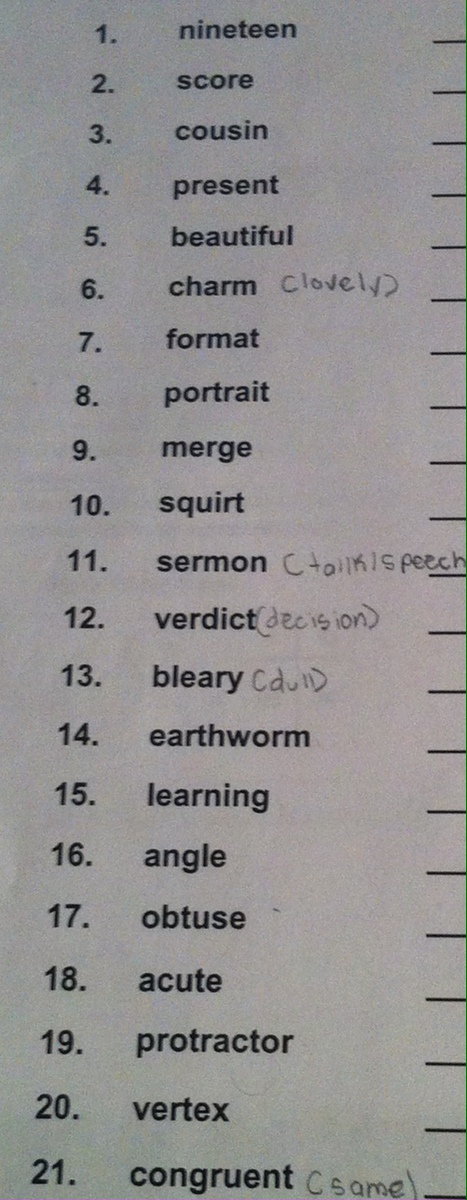 1. nineteen
2. score
3. cousin
4. present
5. beautiful
6. charm (lovely)
7. format
8. portrait
9. merge
10. squirt
11. sermon (talk/speech
12. verdict (decision)
13. bleary (dull)
14. earthworm
15. learning
16. angle
17. obtuse
18. acute
19. protractor
20. vertex
21. congruent (same)